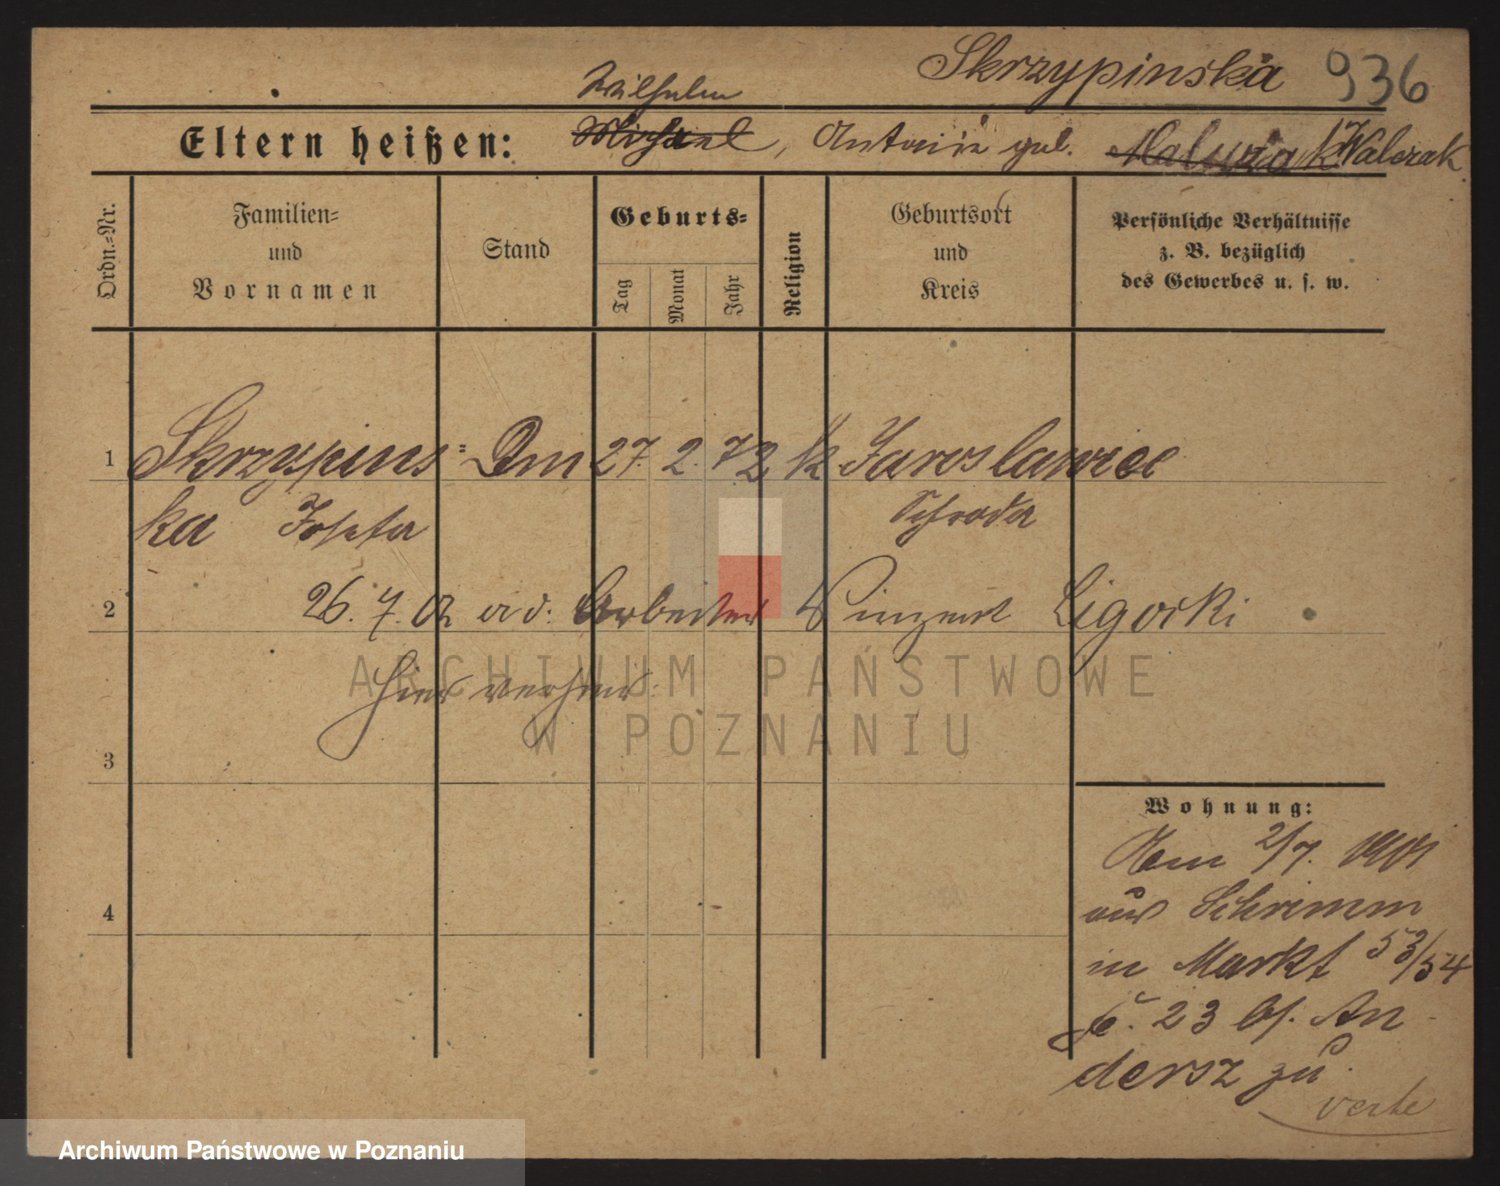 Skrzypinska 936
Wilhelm
Eltern heißen: Michael, Antonie geb. Walczak
Ordn.=Nr.
Familien=
und
Vornamen
Stand
Geburts=
Tag
Monat
Jahr
Religion
Geburtsort
und
Kreis
Persönliche Verhältnisse
z. B. bezüglich
des Gewerbes u. s. w.
1 Skrzypins= Dm 27. 2. 72 k Jaroslawiec
ka Josefa Schroda
2 26. 7. 02 a d. Arbeiter Vinzent Ligocki
hier verheir.
ARCHIWUM PAŃSTWOWE
W POZNANIU
3
4
Wohnung:
Kam 2/7. 1901
aus Schrimm
in Markt 53/54
23 bf. An
dersz zu.
verte
Archiwum Państwowe w Poznaniu